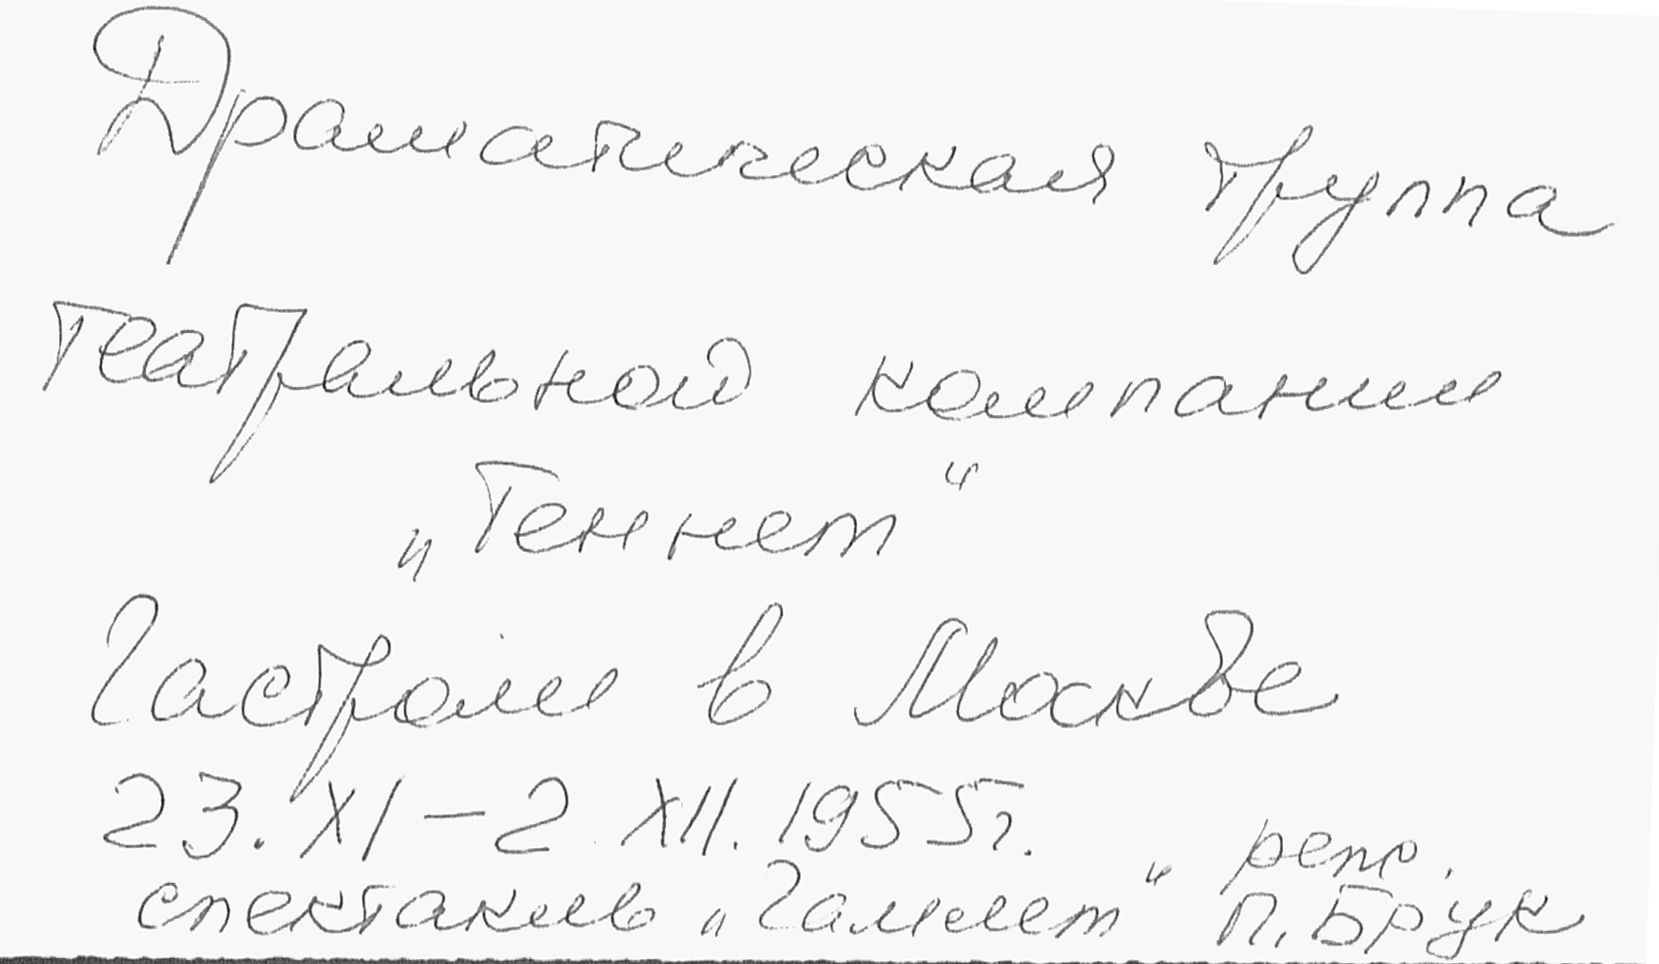 Драматическая труппа
театральной компании
„Теннет“
Гастроли в Москве
23.XI – 2.XII.1955г.
спектакль „Гамлет“ реж. П. Брук